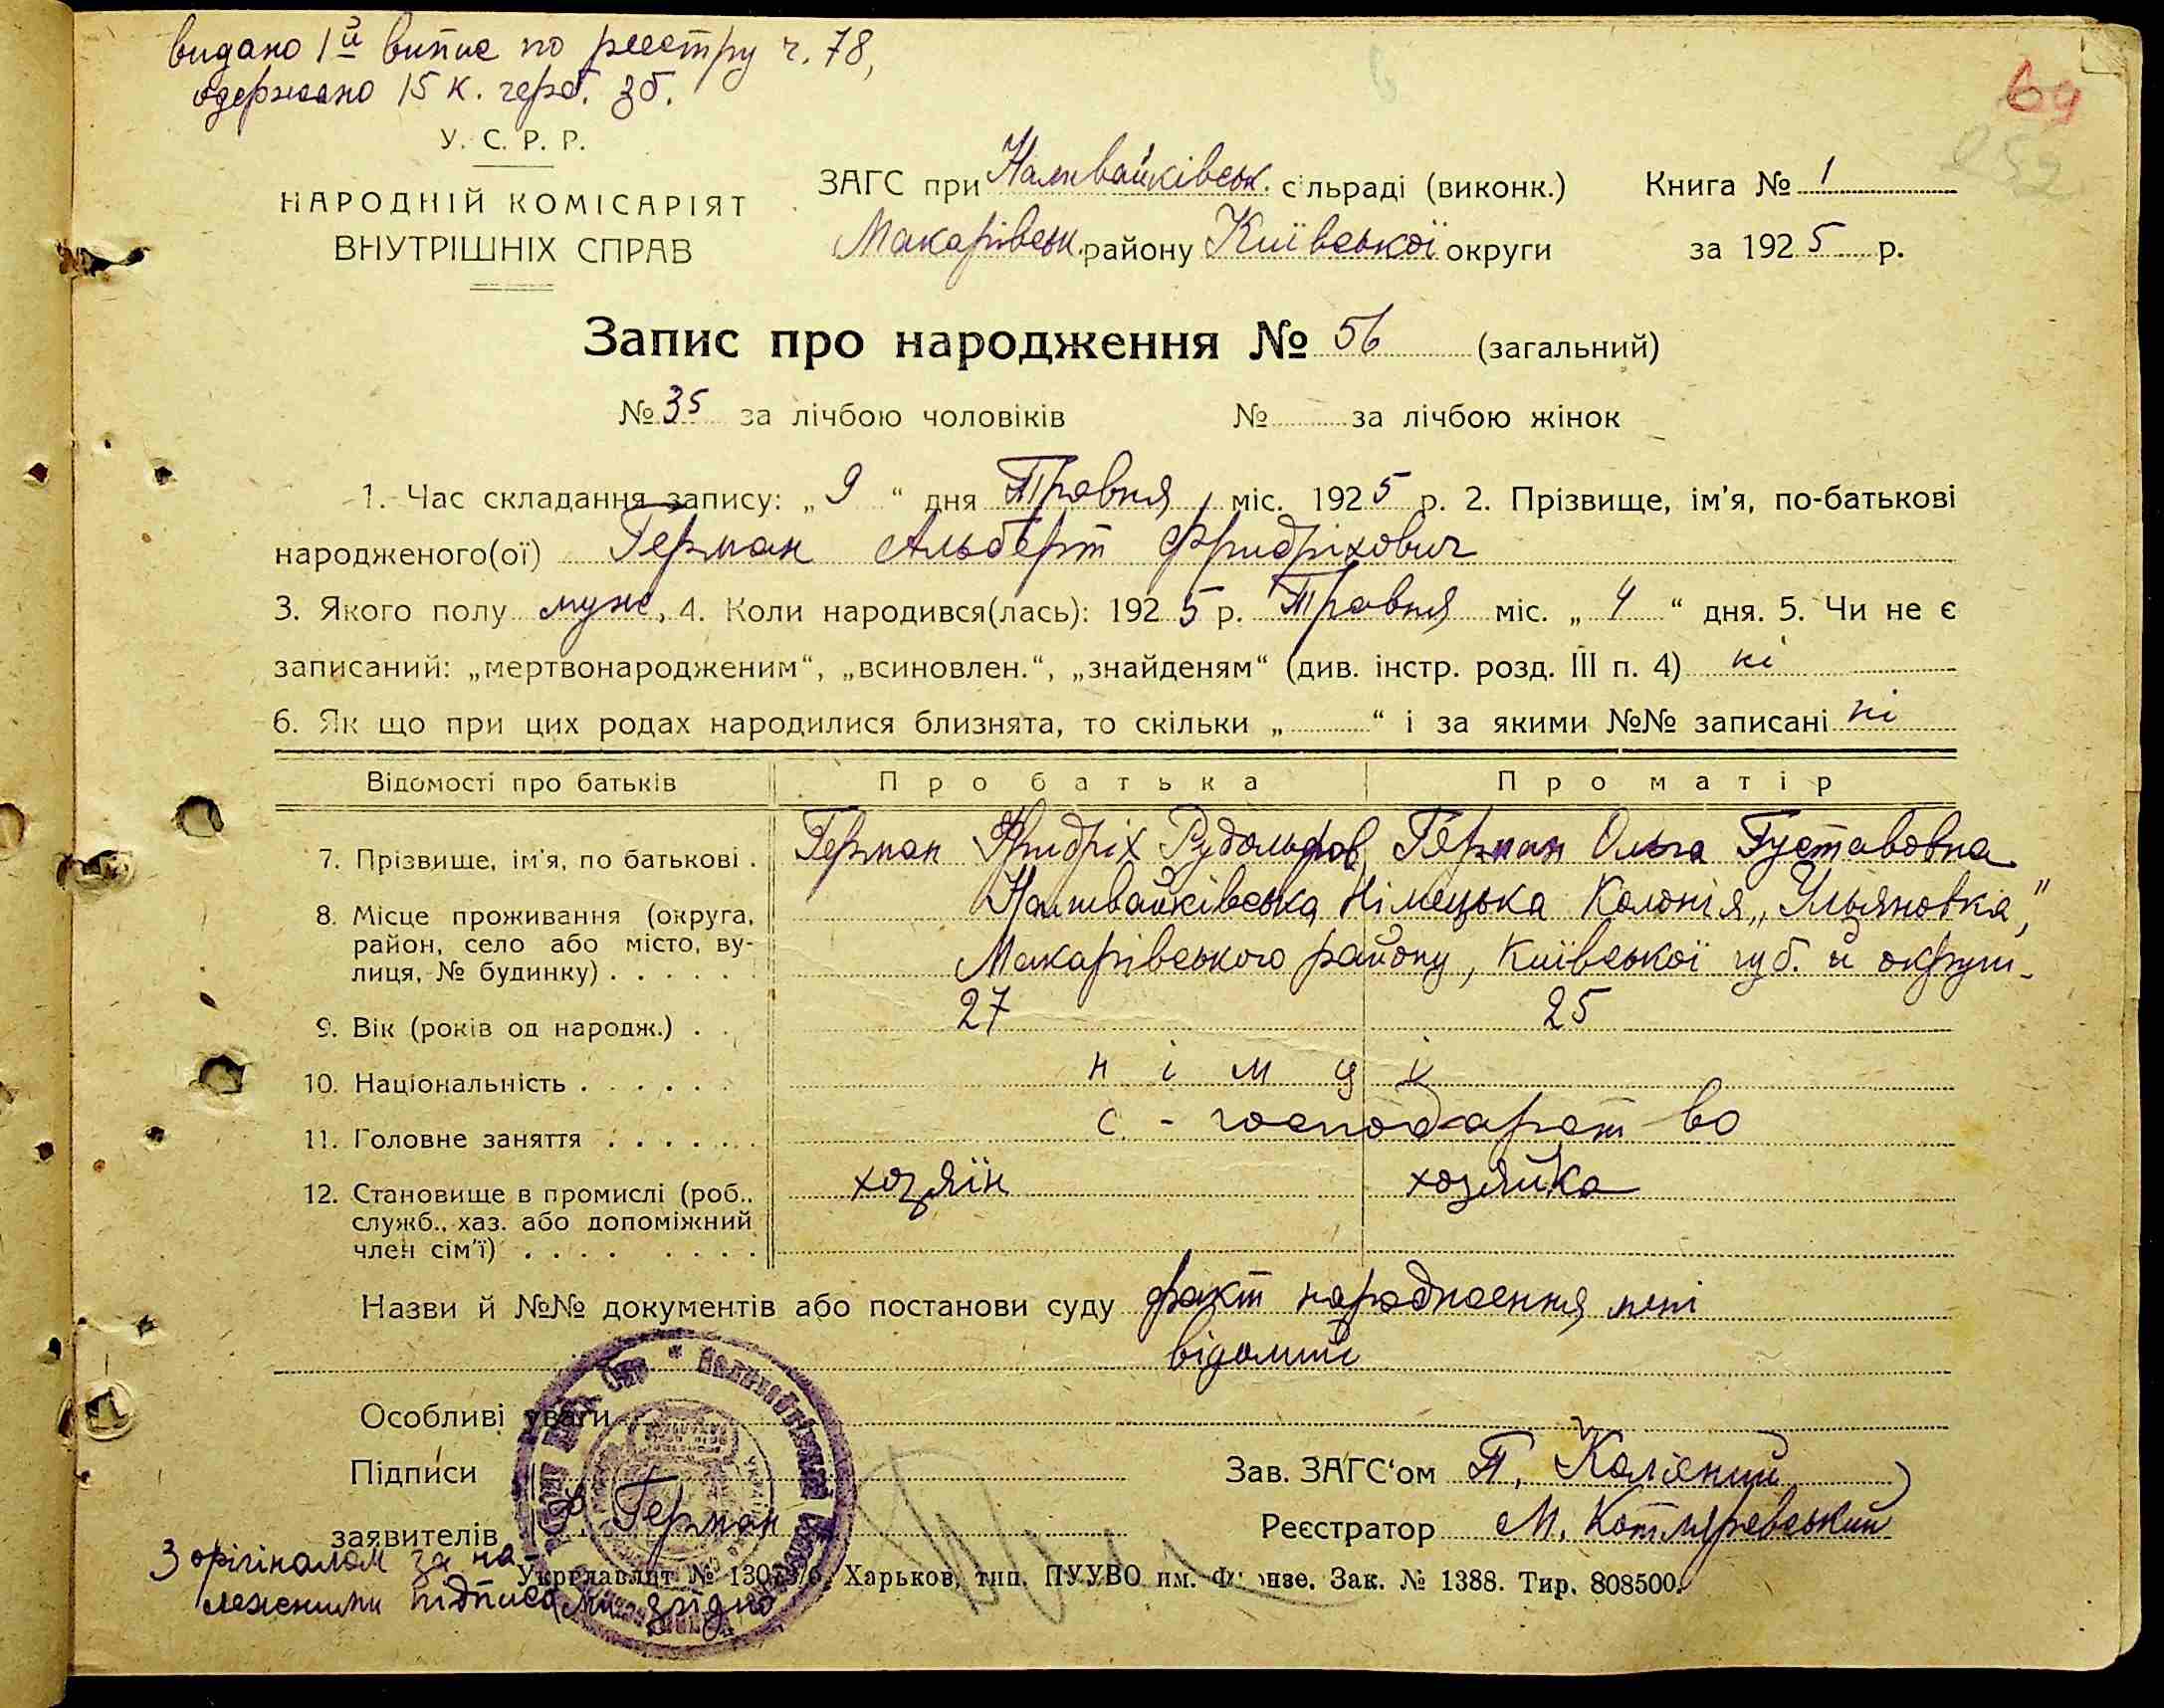 видано 1й випис по реєстру ч. 78,
одержано 15 к. герб. зб.
69
У. С. Р. Р.
НАРОДНІЙ КОМІСАРІЯТ
ВНУТРІШНІХ СПРАВ
ЗАГС при Наливайківськ. сільраді (виконк.) Книга № 1
Макарівськ. району Київської округи за 1925 р.
Запис про народження № 56 (загальний)
№ 35 за лічбою чоловіків № за лічбою жінок
1. Час складання запису: „9“ дня Травня міс. 1925 р. 2. Прізвище, ім'я, по-батькові
народженого(ої) Герман Альберт Фридріхович
3. Якого полу муж. 4. Коли народився(лась): 1925 р. Травня міс. „4“ дня. 5. Чи не є
записаний: „мертвонародженим“, „всиновлен.“, „знайденям“ (див. інстр. розд. III п. 4) ні
6. Як що при цих родах народилися близнята, то скільки „ “ і за якими №№ записані ні
Відомості про батьків Про батька Про матір
7. Прізвище, ім'я, по батькові . Герман Фридріх Рудольфов. Герман Ольга Густавовна
8. Місце проживання (округа, Наливайківська Німецька Колонія „Ульяновка“,
район, село або місто, ву- Макарівського району, Київської губ. й округи.
лиця, № будинку) . . . . .
9. Вік (років од народж.) . . 27 25
10. Національність . . . . . . німці
11. Головне заняття . . . . . . с.-господарство
12. Становище в промислі (роб., хозяїн хозяйка
служб., хаз. або допоміжний
член сім'ї) . . . . . . . .
Назви й №№ документів або постанови суду факт народження мені
відомий
Особливі уваги
Підписи Зав. ЗАГС'ом П.
заявителів Ф. Герман Реєстратор М. Котляревський
З орігіналом за на-
лежними підписами згідно
Укрглавліт № Харьков, тип. ПУУВО им. Фрунзе. Зак. № 1388. Тир. 808500.